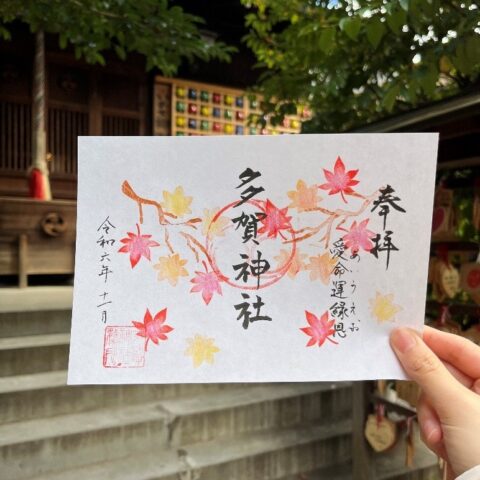 奉拝
愛命運縁恩
あいうえお
多賀神社
令和六年十一月